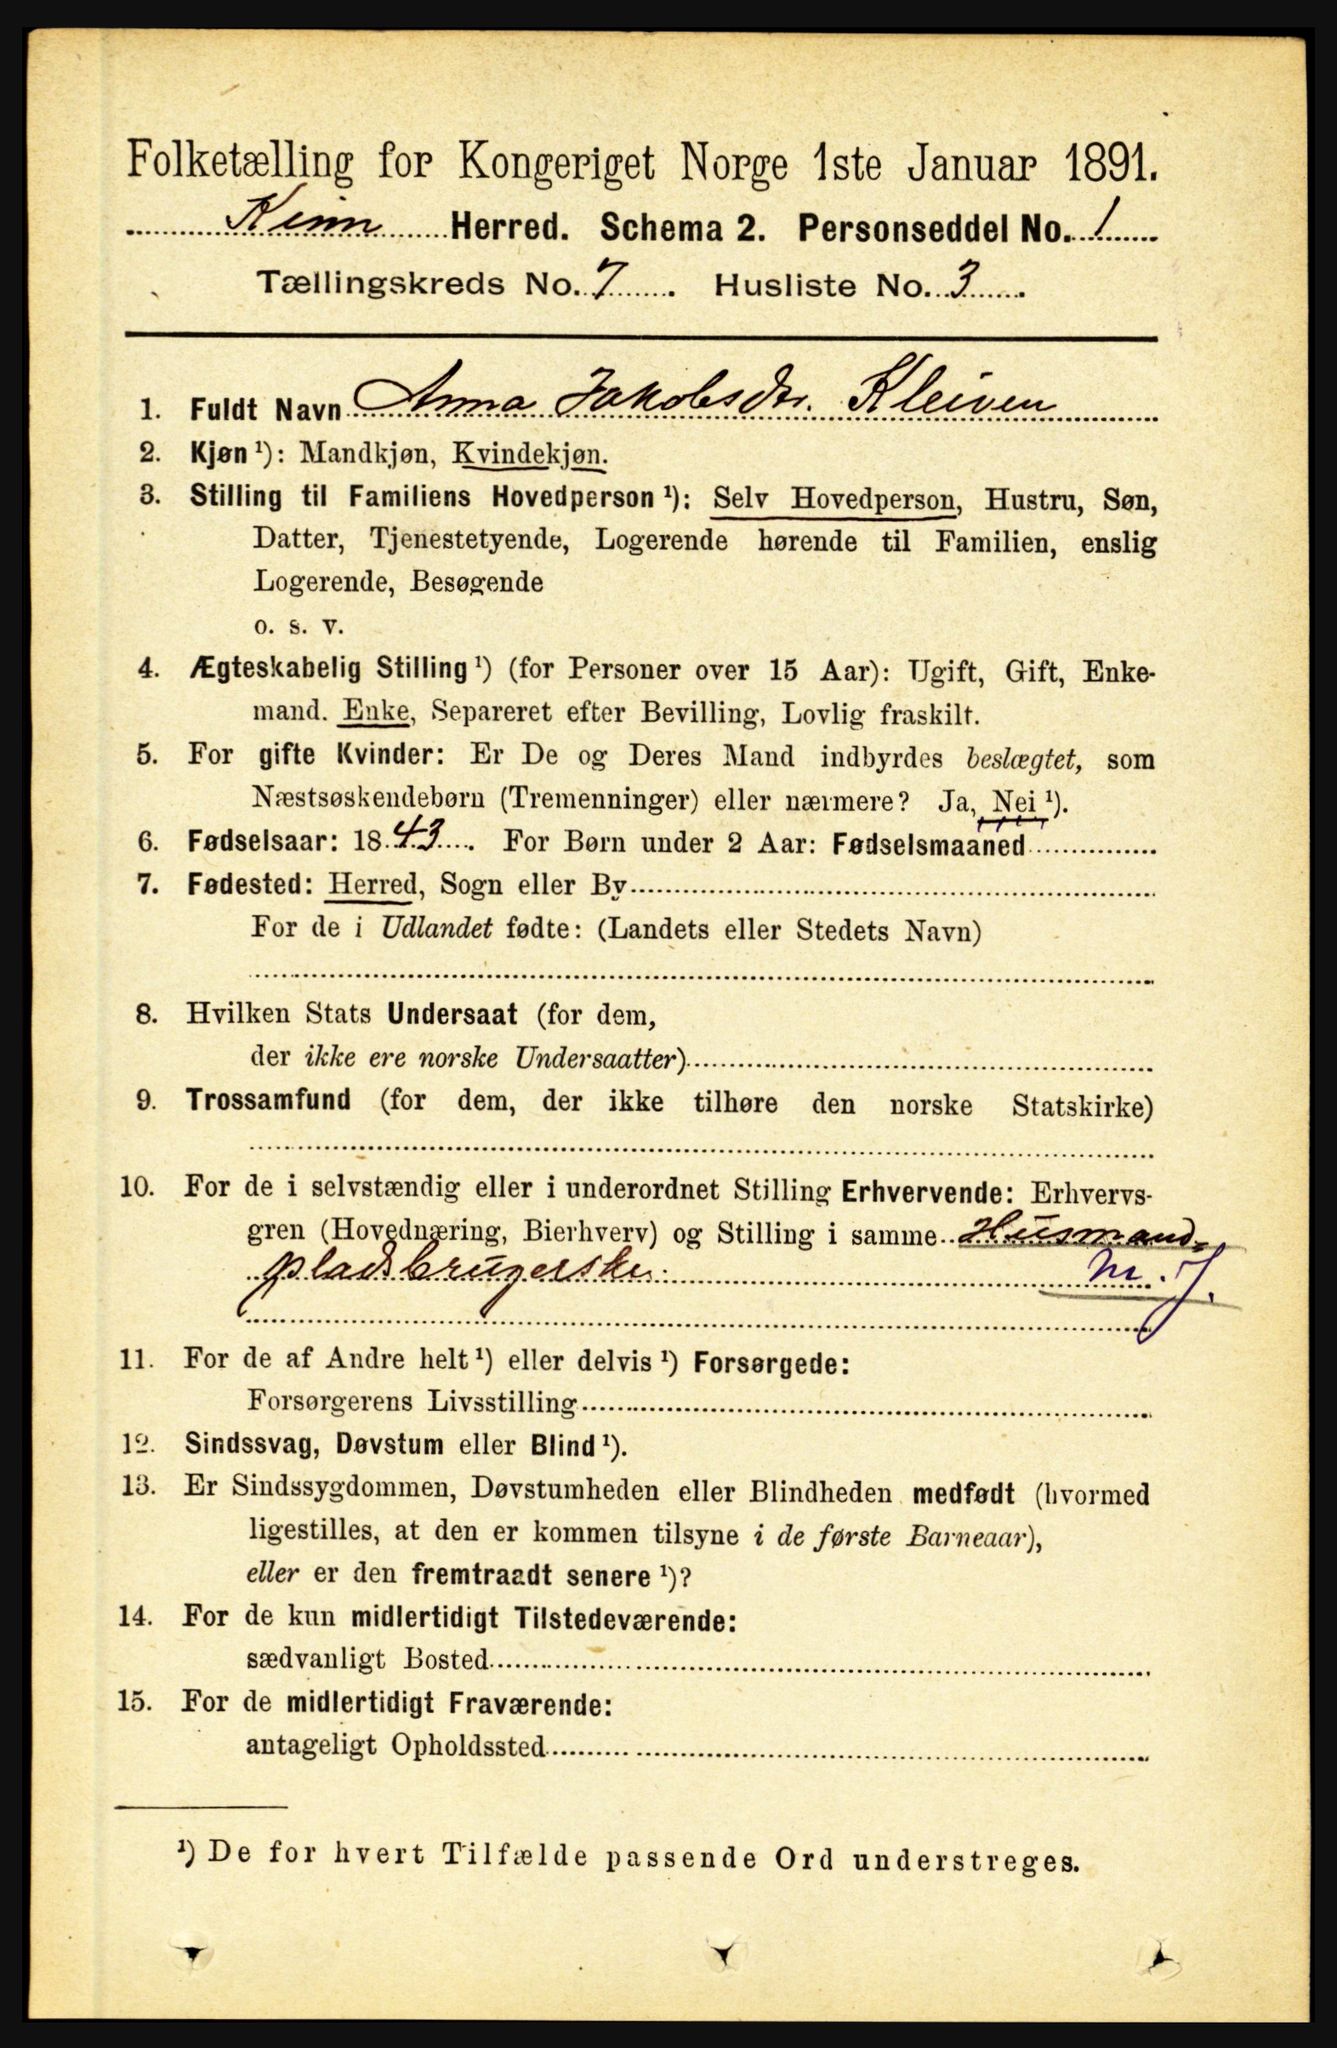 Folketælling for Kongeriget Norge 1ste Januar 1891.
Kinn Herred. Schema 2. Personseddel No. 1
Tællingskreds No. 7 Husliste No. 3
1. Fuldt Navn Anna Jakobsdtr. Kleiven
2. Kjøn ¹): Mandkjøn, Kvindekjøn.
3. Stilling til Familiens Hovedperson ¹): Selv Hovedperson, Hustru, Søn,
Datter, Tjenestetyende, Logerende hørende til Familien, enslig
Logerende, Besøgende
o. s. v.
4. Ægteskabelig Stilling ¹) (for Personer over 15 Aar): Ugift, Gift, Enke-
mand. Enke, Separeret efter Bevilling, Lovlig fraskilt.
5. For gifte Kvinder: Er De og Deres Mand indbyrdes beslægtet, som
Næstsøskendebørn (Tremenninger) eller nærmere? Ja, Nei ¹).
6. Fødselsaar: 1843. For Børn under 2 Aar: Fødselsmaaned
7. Fødested: Herred, Sogn eller By
For de i Udlandet fødte: (Landets eller Stedets Navn)
8. Hvilken Stats Undersaat (for dem,
der ikke ere norske Undersaatter)
9. Trossamfund (for dem, der ikke tilhøre den norske Statskirke)
10. For de i selvstændig eller i underordnet Stilling Erhvervende: Erhvervs-
gren (Hovednæring, Bierhverv) og Stilling i samme Husmand-
pladsbrugerske. m. J.
11. For de af Andre helt ¹) eller delvis ¹) Forsørgede:
Forsørgerens Livsstilling
12. Sindssvag, Døvstum eller Blind ¹).
13. Er Sindssygdommen, Døvstumheden eller Blindheden medfødt (hvormed
ligestilles, at den er kommen tilsyne i de første Barneaar),
eller er den fremtraadt senere ¹)?
14. For de kun midlertidigt Tilstedeværende:
sædvanligt Bosted
15. For de midlertidigt Fraværende:
antageligt Opholdssted
¹) De for hvert Tilfælde passende Ord understreges.